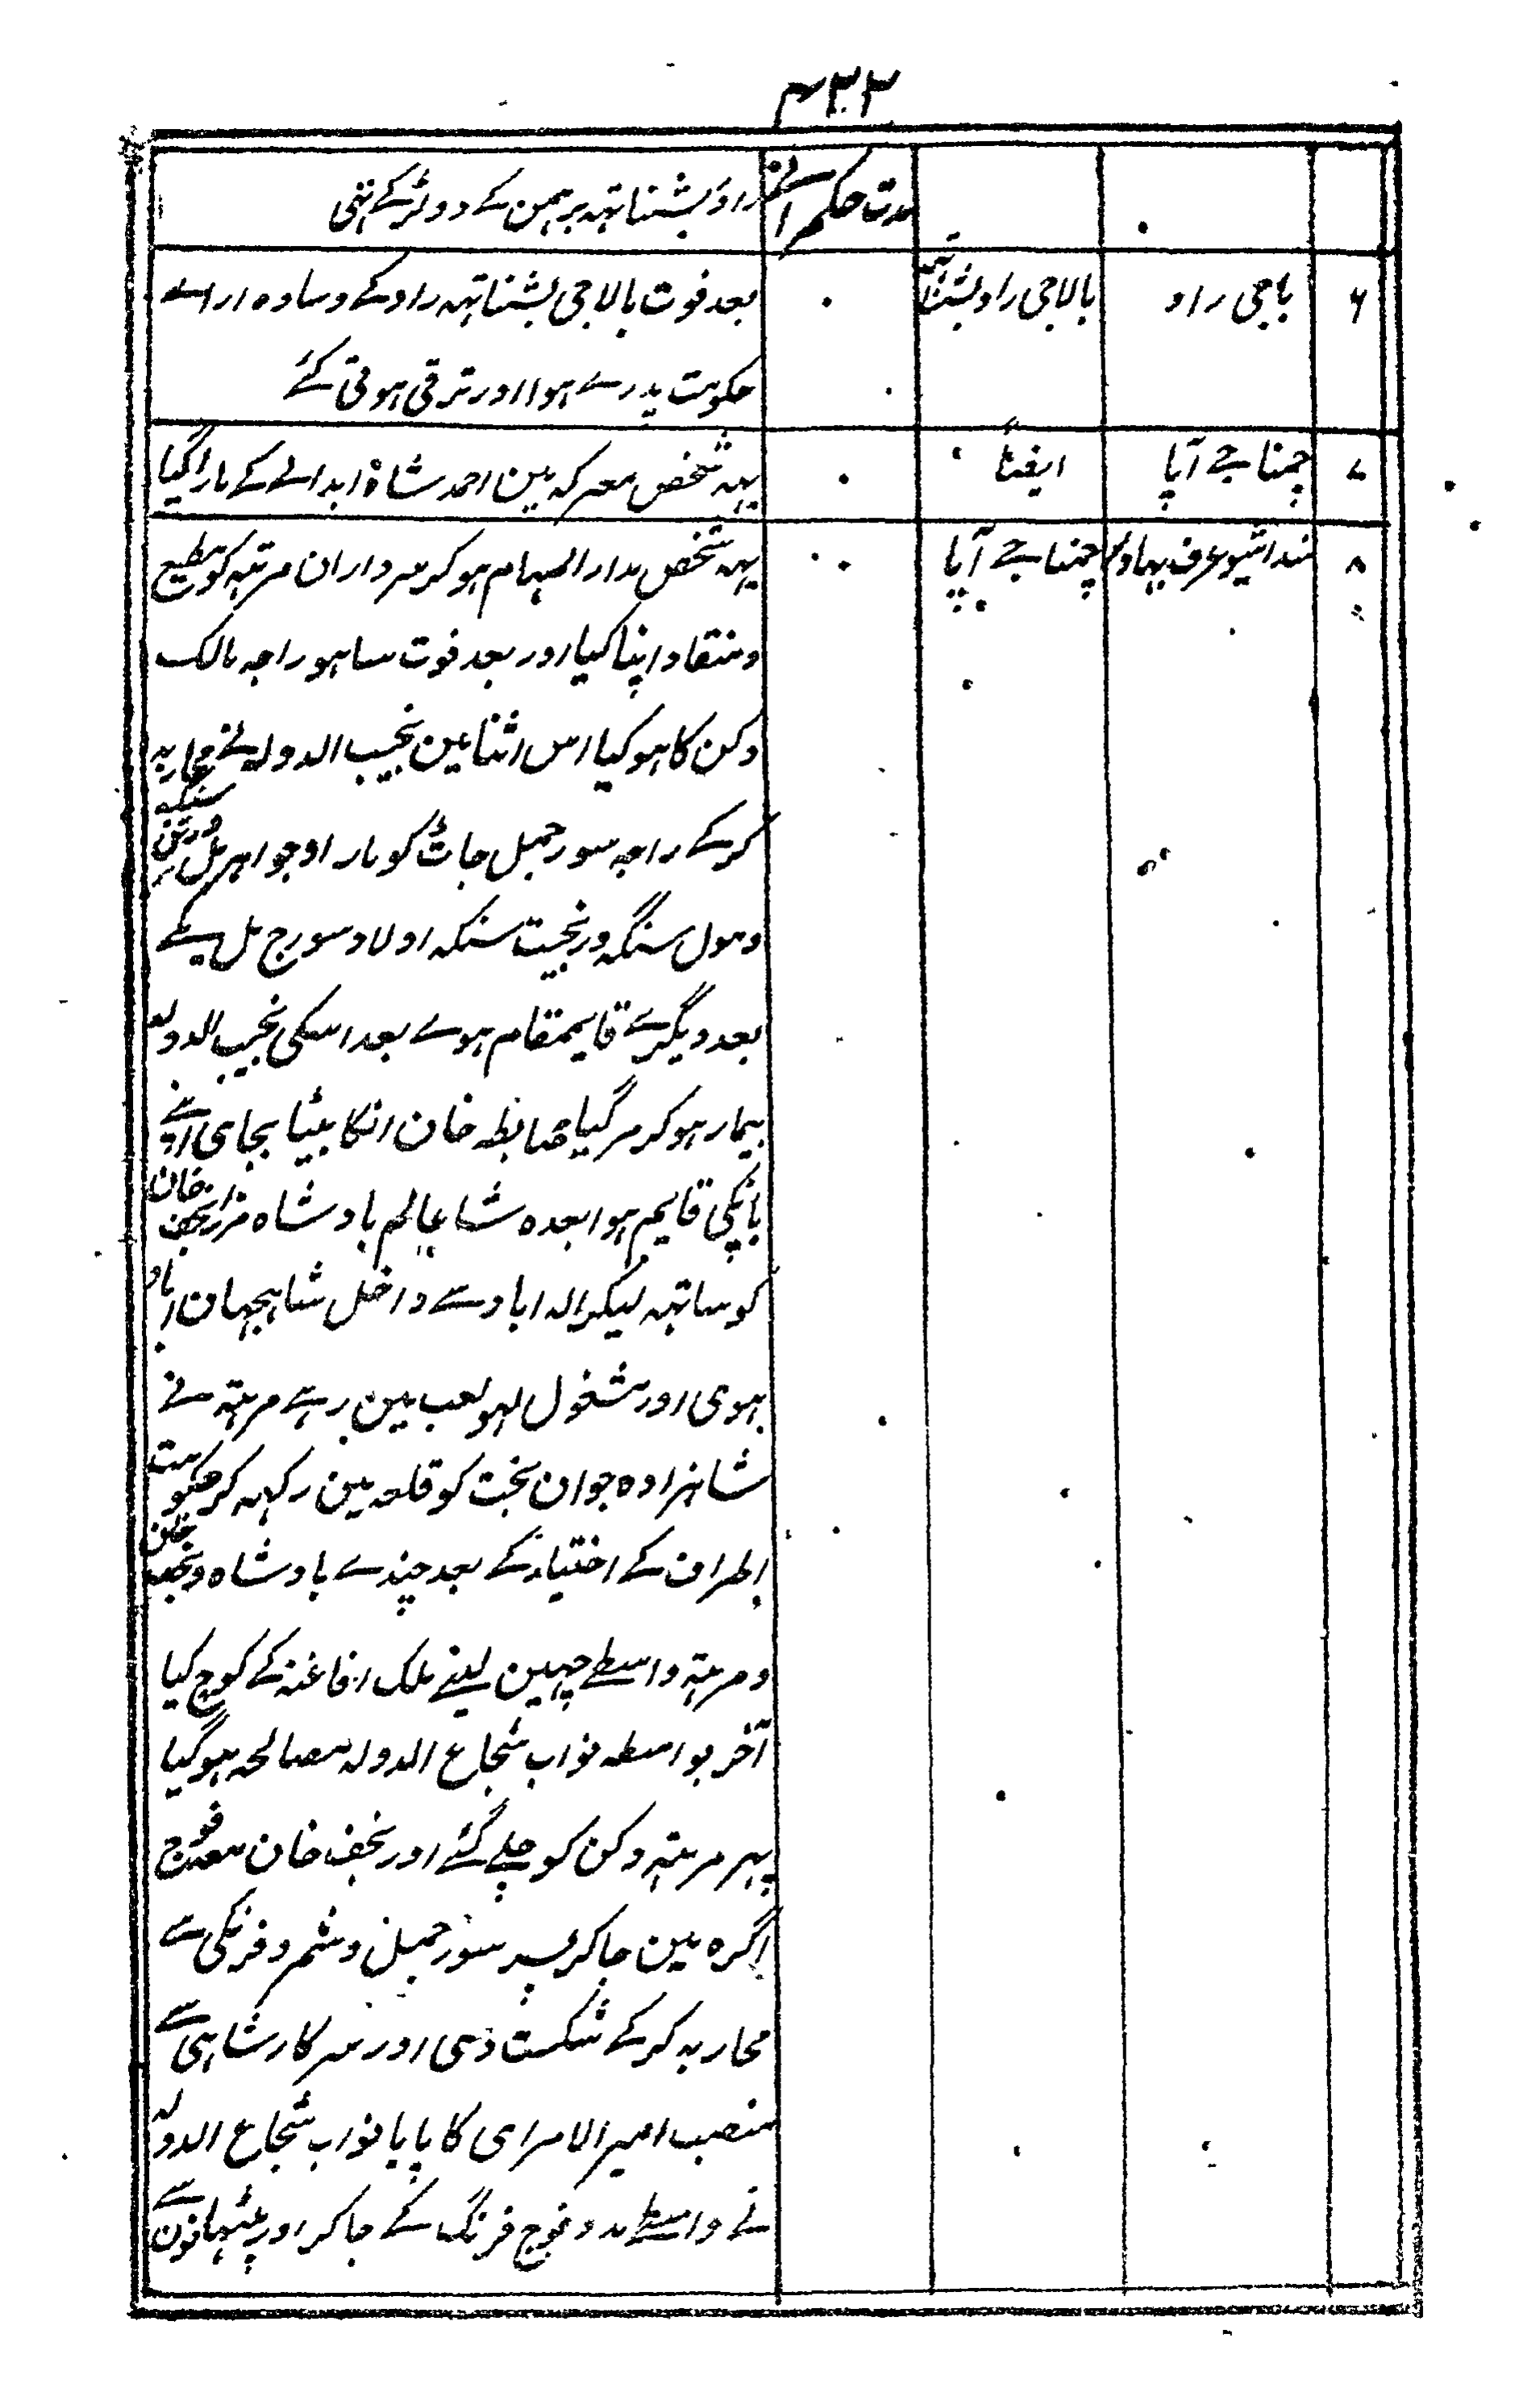 ۴۳۳
مدت حکمرانے راؤ بشناتہہ برہمن کے دو لڑکے تہی
۶ باجی راو بالاجی راو بشناتہہ ۰ بعد فوت بالاجی بشناتہہ راو کے وسادہ اراے
حکومت پدر سے ہوا اور ترقی ہوتی گئے
۷ چمنا جے آپا ایضاً ۰ یہہ شخص معرکہ مین احمد شاہ ابدالے کے مارا گیا
۸ سداشیو عرف بہاو چمنا جے آپا ۰ یہہ شخص مدار المہام ہو کر سرداران مرہتہ کو مطیع
و منقاد اپنا کیا اور بعد فوت ساہو راجہ مالک
دکن کا ہو کیا اس اثنا مین نجیب الدولہ نے محاربہ
کر کے راجہ سورجمل جاٹ کو مارا و جواہر مل و رتن سنگہ
و نول سنگہ و رنجیت سنکہ اولاد سورج مل یکے
بعد دیگرے قایمقام ہوے بعد اسکی نجیب الدولہ
بیمار ہو کر مر گیا ضابطہ خان انکا بیٹا بجای اونے
باپکی قایم ہوا بعدہ شاہ عالم بادشاہ مرزا نجف خان
کو ساتہہ لیکر الہ اباد سے داخل شاہجہان اباد
ہوی اور مشغول لہو لعب مین رہے مرہتہ نے
شاہزادہ جوان بخت کو قلعہ مین رکہہ کر حکومت
اطراف کے اختیار کے بعد چندے بادشاہ و نجف خان
و مرہتہ واسطے چہین لینے ملک افاغنہ کے کوچ کیا
آخر بواسطہ نواب شجاع الدولہ مصالحہ ہو گیا
پہر مرہتہ دکن کو چلے گئے اور نجف خان معہ فوج
اگرہ مین جا کر پسر سورجمل و شمرو فرنکی سے
محاربہ کر کے شکست دی اور سرکار شاہی سے
منصب امیر الامرای کا پایا نواب شجاع الدولہ
نے واسطے مدد فوج فرنگ کے جا کر اور پٹہانون سے